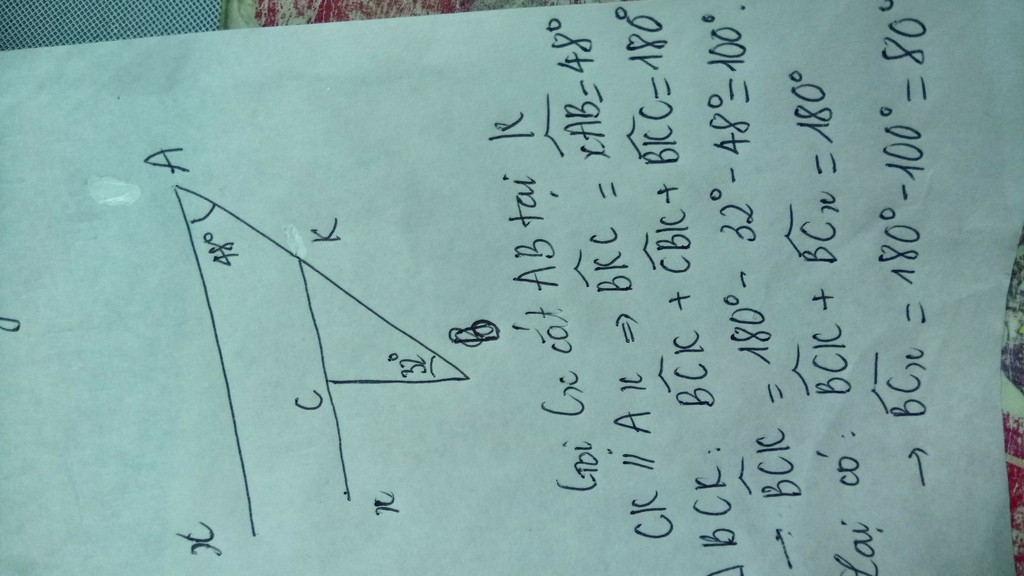 A
48°
x
K
C
32°
B
x
Gọi Cx cắt AB tại K
CK // Ax => BKC = xAB = 48°
Δ BCK: BCK + CBK + BKC = 180°
→ BCK = 180° - 32° - 48° = 100°.
Lại có: BCK + BCx = 180°
→ BCx = 180° - 100° = 80°